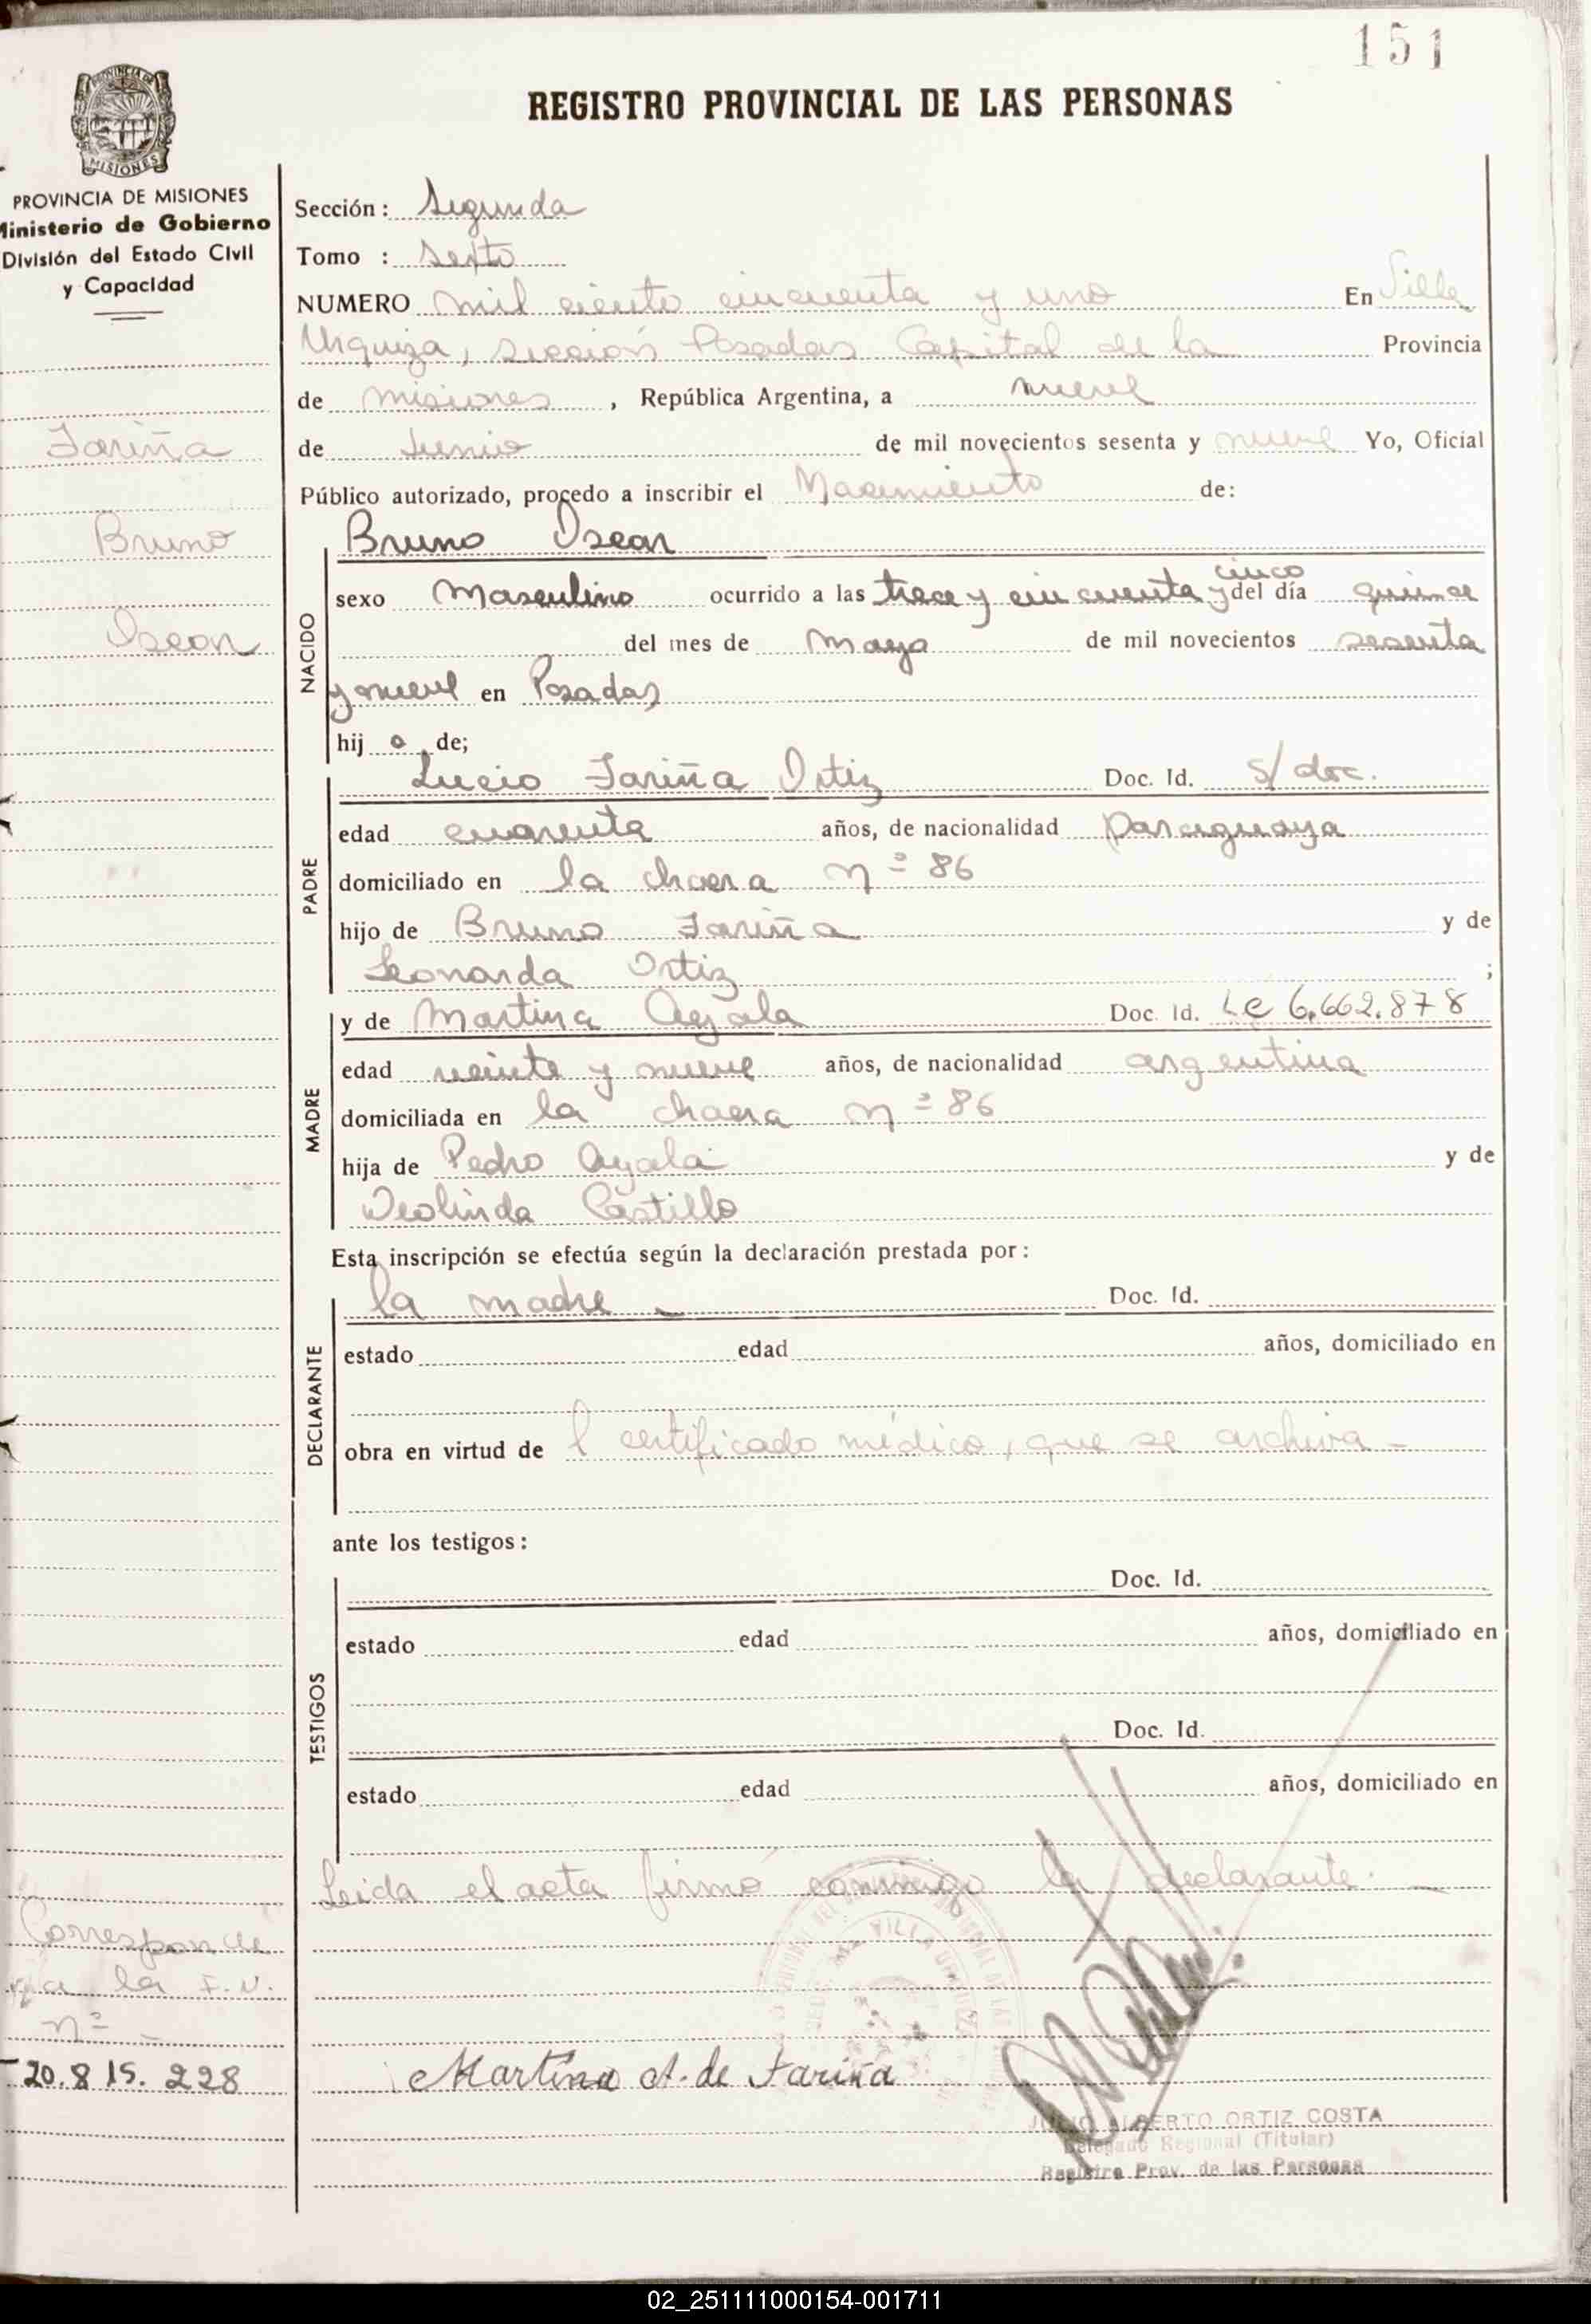 151
REGISTRO PROVINCIAL DE LAS PERSONAS
PROVINCIA DE MISIONES
MISIONES
PROVINCIA DE MISIONES
Ministerio de Gobierno
División del Estado Civil
y Capacidad
Fariña
Bruno
Oscar
Sección: Segunda
Tomo : Sexto
NUMERO mil ciento cincuenta y uno En Villa
Urquiza, sección Posadas Capital de la Provincia
de Misiones, República Argentina, a nueve
de Junio de mil novecientos sesenta y nueve Yo, Oficial
Público autorizado, procedo a inscribir el Nacimiento de:
NACIDO
Bruno Oscar
sexo Masculino ocurrido a las trece y cincuenta y cinco del día quince
del mes de Mayo de mil novecientos sesenta
y nueve en Posadas
hij o de;
PADRE
Lucio Fariña Ortiz Doc. Id. s/doc.
edad cuarenta años, de nacionalidad Paraguaya
domiciliado en la chacra nº 86
hijo de Bruno Fariña y de
Leonarda Ortiz ;
MADRE
y de Martina Ayala Doc. Id. Lc 6.662.878
edad veinte y nueve años, de nacionalidad argentina
domiciliada en la chacra nº 86
hija de Pedro Ayala y de
Deolinda Castillo
Esta inscripción se efectúa según la declaración prestada por:
DECLARANTE
la madre – Doc. Id.
estado edad años, domiciliado en
obra en virtud de l certificado médico, que se archiva –
ante los testigos:
TESTIGOS
Doc. Id.
estado edad años, domiciliado en
Doc. Id.
estado edad años, domiciliado en
Leida el acta firmó conmigo la declarante. –
Corresponde
a la I.N.
nº –
20.815.228
VILLA URQUIZA
Martina A. de Fariña
JULIO ALBERTO ORTIZ COSTA
Delegado Regional (Titular)
Registro Prov. de las Personas
02_251111000154-001711